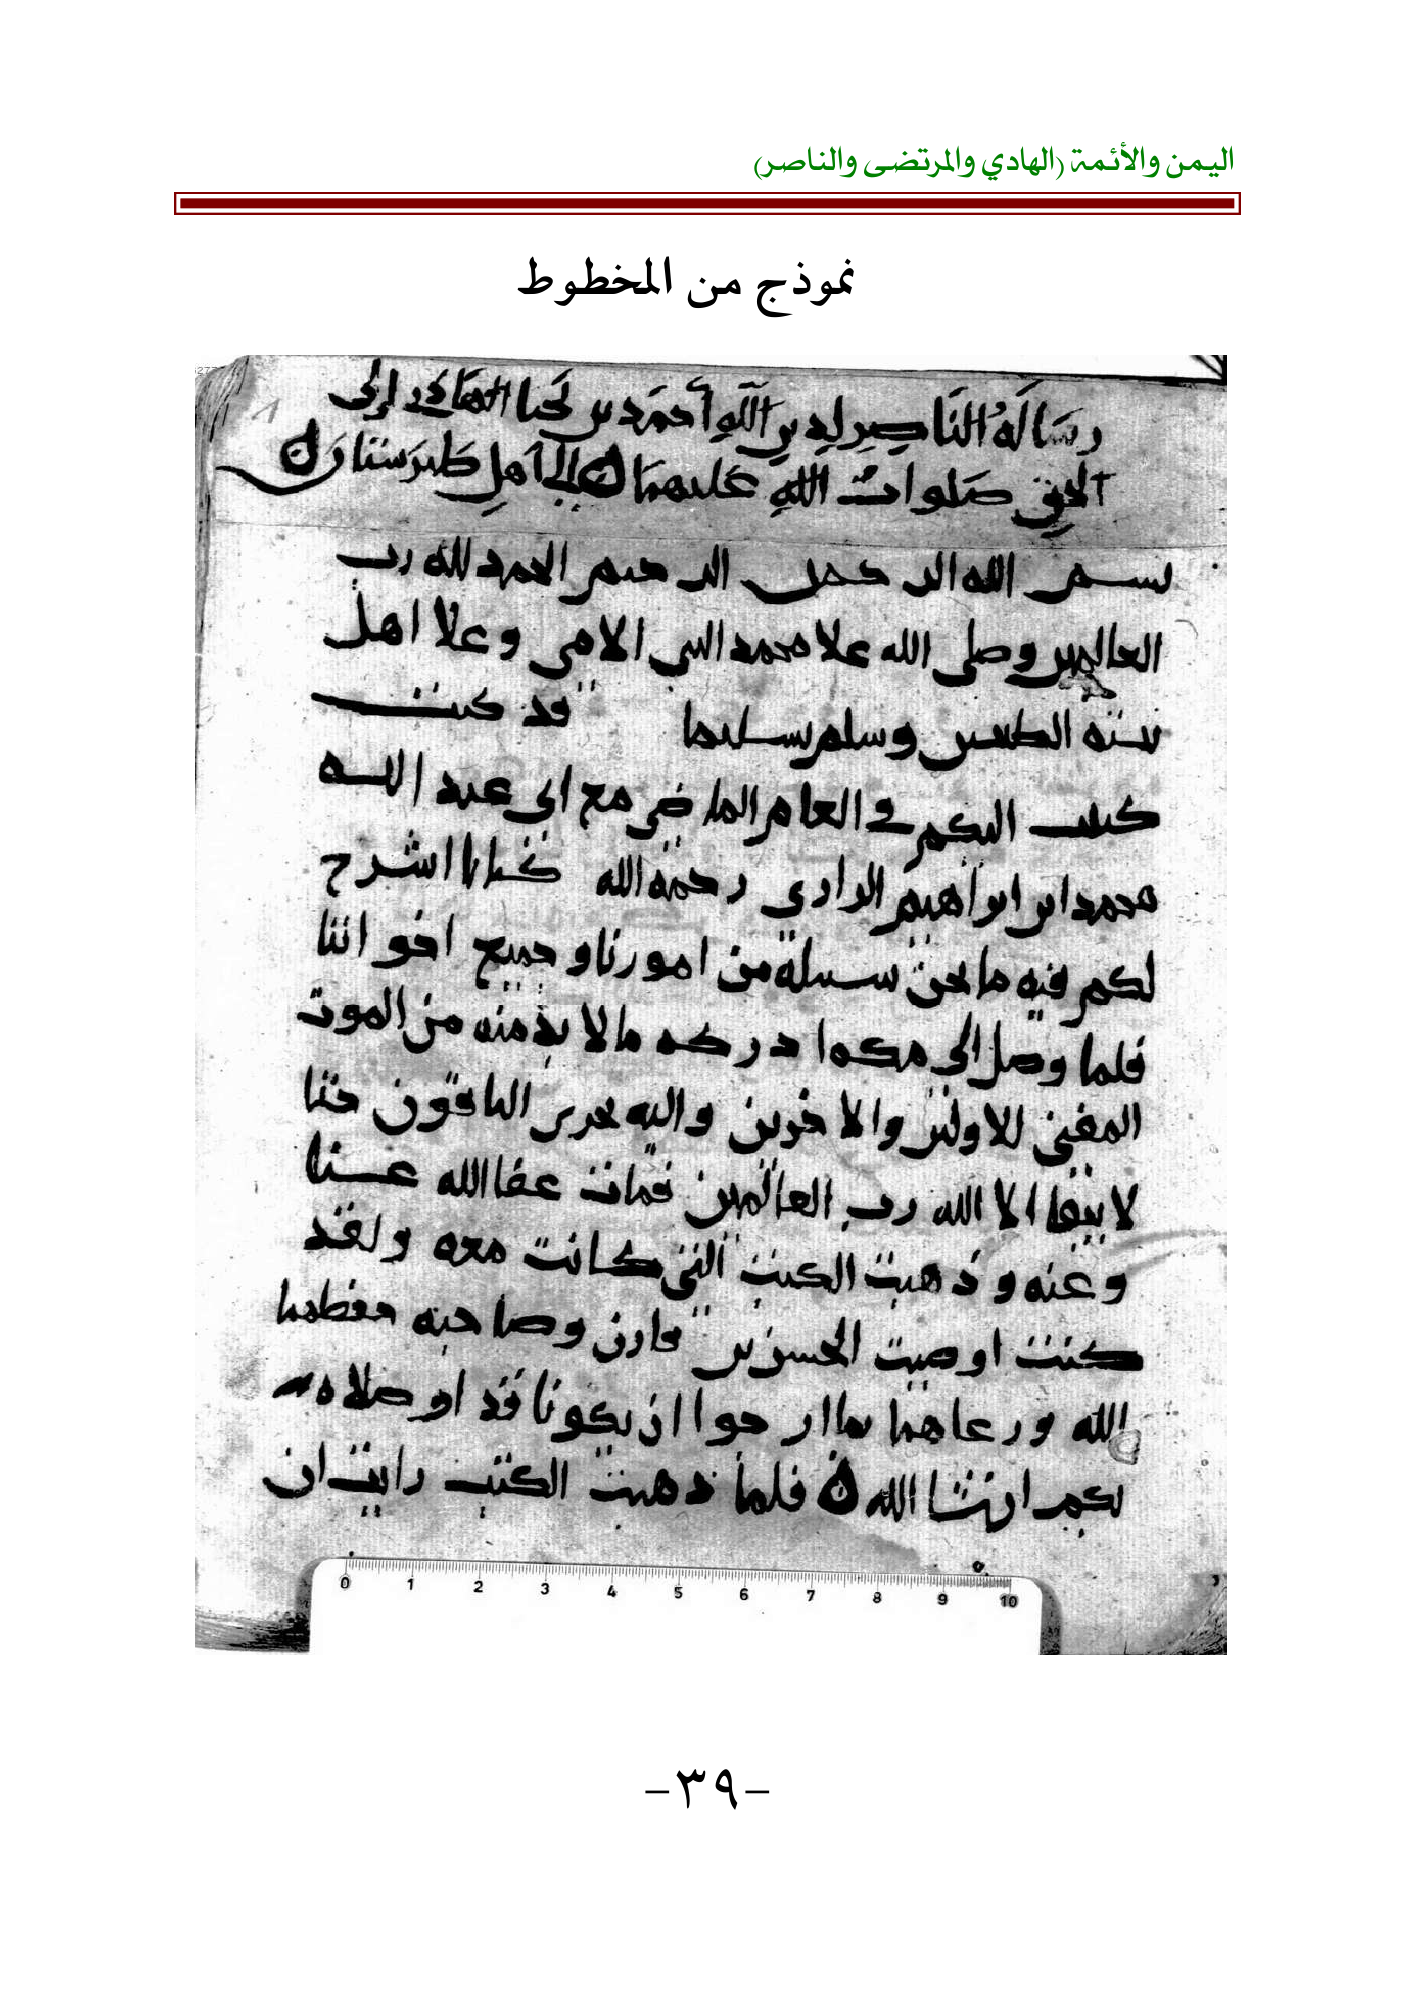 اليمن والأئمة (الهادي والمرتضى والناصر)
نموذج من المخطوط
رسَالَةُ النَاصِرِ لِدِينِ اللَّهِ أَحمَد بن يَحيَا الهَادِي إِلَى
الحَقِ صَلوات اللهِ عَليهمَا إلى أهلِ طَبرَستَارَن
بسم الله الرحمن الرحيم الحمد لله رب
العالمين وصلى الله علا محمد النبي الامي وعلا اهل
بيته الطيبين وسلم تسليما قد كنت
كتبت اليكم في العام الماضي مع ابي عبد الله
محمد ابن ابراهيم الرازي رحمة الله كتابا اشرح
لكم فيه ما نحن بسبيله من امورنا وجميع اخواننا
فلما وصل الى مكه ادركه ما لا بد منه من الموت
المفني للاولين والاخرين واليه يجري الباقون حتا
لا يبقا الا الله رب العالمين فمات عفا الله عنا
وعنه وذهبت الكتب التي كانت معه ولقد
كنت اوصيت الحسن بن وصاحبه حفظهما
الله ورعاهما بما ارجوا ان يكونا قد اوصلاه
بكم ان شا الله ه فلما ذهبت الكتب رايت ان
0 1 2 3 4 5 6 7 8 9 10
-٣٩-